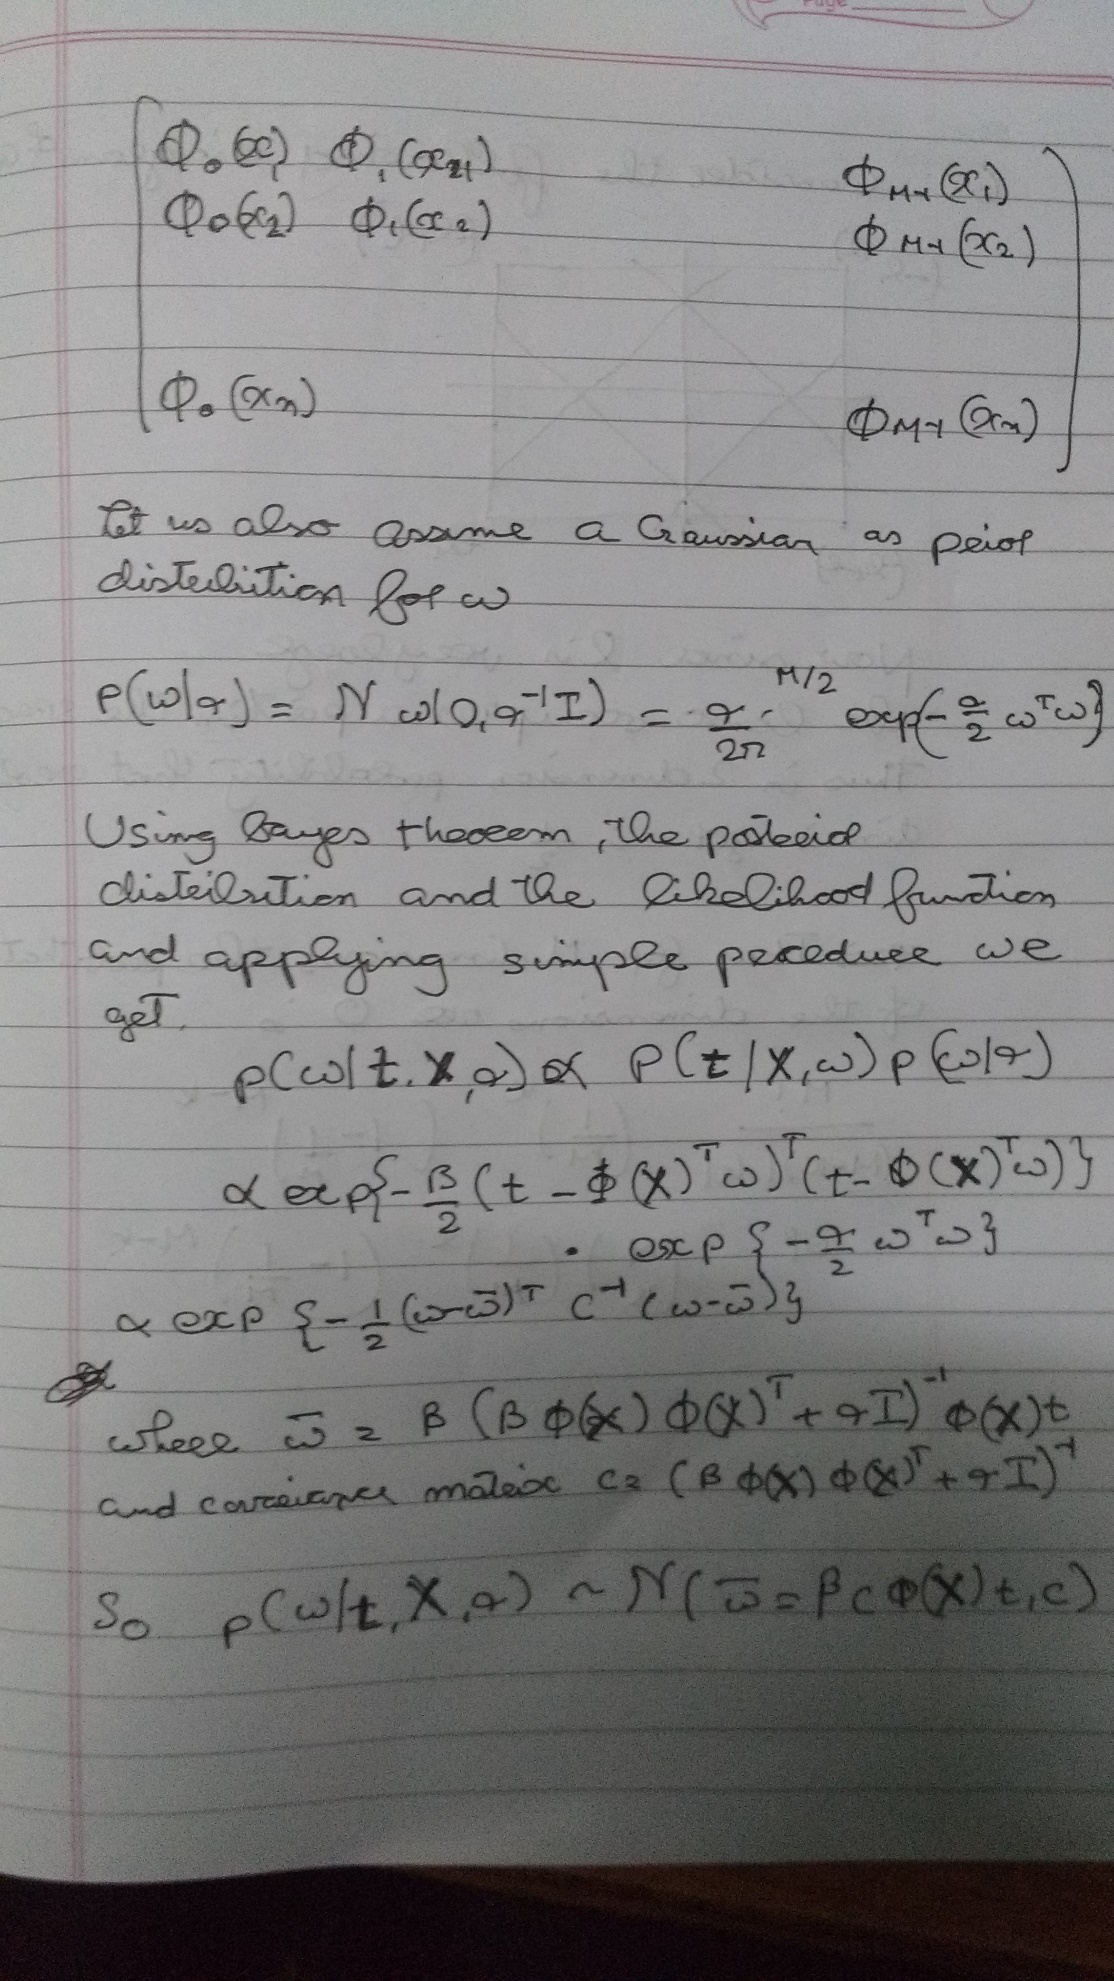 Page
Φ₀(x₁) Φ₁(x₁) Φ_{M-1}(x₁)
Φ₀(x₂) Φ₁(x₂) Φ_{M-1}(x₂)
Φ₀(xₙ) Φ_{M-1}(xₙ)
Let us also assume a Gaussian as prior
distribution for ω
P(ω|α) = N ω|0, α⁻¹I) = α/2π ^{M/2} exp{-α/2 ωᵀω}
Using Bayes theorem, the posterior
distribution and the likelihood function
and applying simple procedure we
get.
p(ω|t, X, α) ∝ P(t|X, ω) p(ω|α)
∝ exp{-β/2 (t - Φ(X)ᵀω)ᵀ(t - Φ(X)ᵀω)}
· exp {-α/2 ωᵀω}
∝ exp {-1/2 (ω-ω̄)ᵀ C⁻¹ (ω-ω̄)}
where ω̄ = β (β Φ(X) Φ(X)ᵀ + αI)⁻¹ Φ(X)t
and covariance matrix C = (β Φ(X) Φ(X)ᵀ + αI)⁻¹
So p(ω|t, X, α) ~ N(ω̄ = βCΦ(X)t, C)